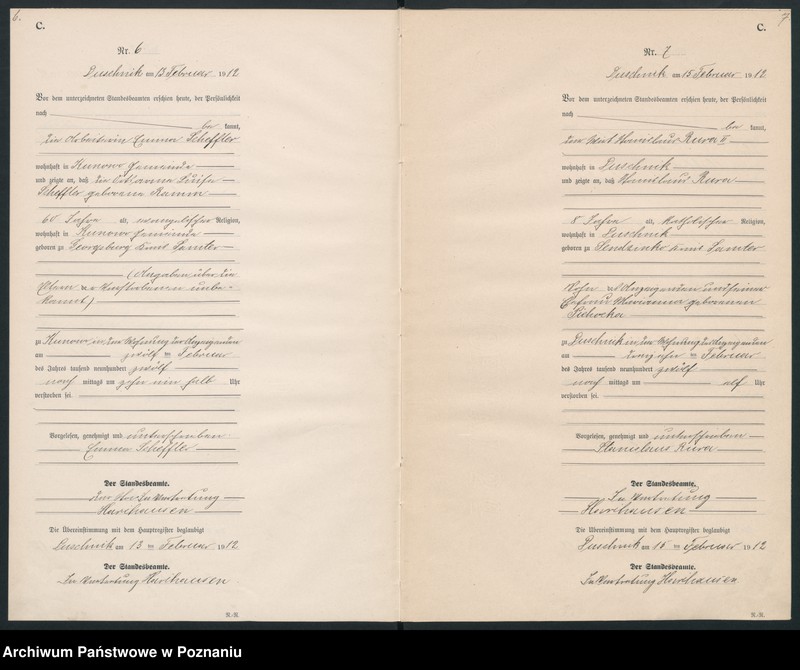 6.
C.
Nr. 6
Duschnik am 13 Februar 1912
Vor dem unterzeichneten Standesbeamten erschien heute, der Persönlichkeit
nach
be kannt,
die Arbeiterin Emma Scheffler
wohnhaft in Kunowo Gemeinde
und zeigte an, daß die Luise
Scheffler geborene Ramm
60 Jahre alt, evangelischer Religion,
wohnhaft in Kunowo Gemeinde
geboren zu Georgsberg Kreis Samter
(Angaben über die
Eltern der Verstorbenen unbe-
kannt)
zu Kunowo in der Wohnung der Anzeigenden
am zwölf ten Februar
des Jahres tausend neunhundert zwölf
nach mittags um zehn ein halb Uhr
verstorben sei.
Vorgelesen, genehmigt und unterschrieben
Emma Scheffler
Der Standesbeamte.
In Vertretung
Harhausen
Die Übereinstimmung mit dem Hauptregister beglaubigt
Duschnik am 13 ten Februar 1912
Der Standesbeamte.
In Vertretung Harhausen
R.-R.
7
C.
Nr. 7
Duschnik am 15 Februar 1912
Vor dem unterzeichneten Standesbeamten erschien heute, der Persönlichkeit
nach
be kannt,
den Wirt Stanislaus Kura II
wohnhaft in Duschnik
und zeigte an, daß Stanislaus Kura
8 Jahre alt, katholischer Religion,
wohnhaft in Duschnik
geboren zu Sendzinko Kreis Samter
Sohn des Anzeigenden und seiner
Ehefrau Marianna geborenen
Cichocka
zu Duschnik in der Wohnung des Anzeigenden
am ten Februar
des Jahres tausend neunhundert zwölf
nach mittags um elf Uhr
verstorben sei.
Vorgelesen, genehmigt und unterschrieben
Stanislaus Kura
Der Standesbeamte.
In Vertretung
Harhausen
Die Übereinstimmung mit dem Hauptregister beglaubigt
Duschnik am 15 ten Februar 1912
Der Standesbeamte.
In Vertretung Harhausen
R.-R.
Archiwum Państwowe w Poznaniu